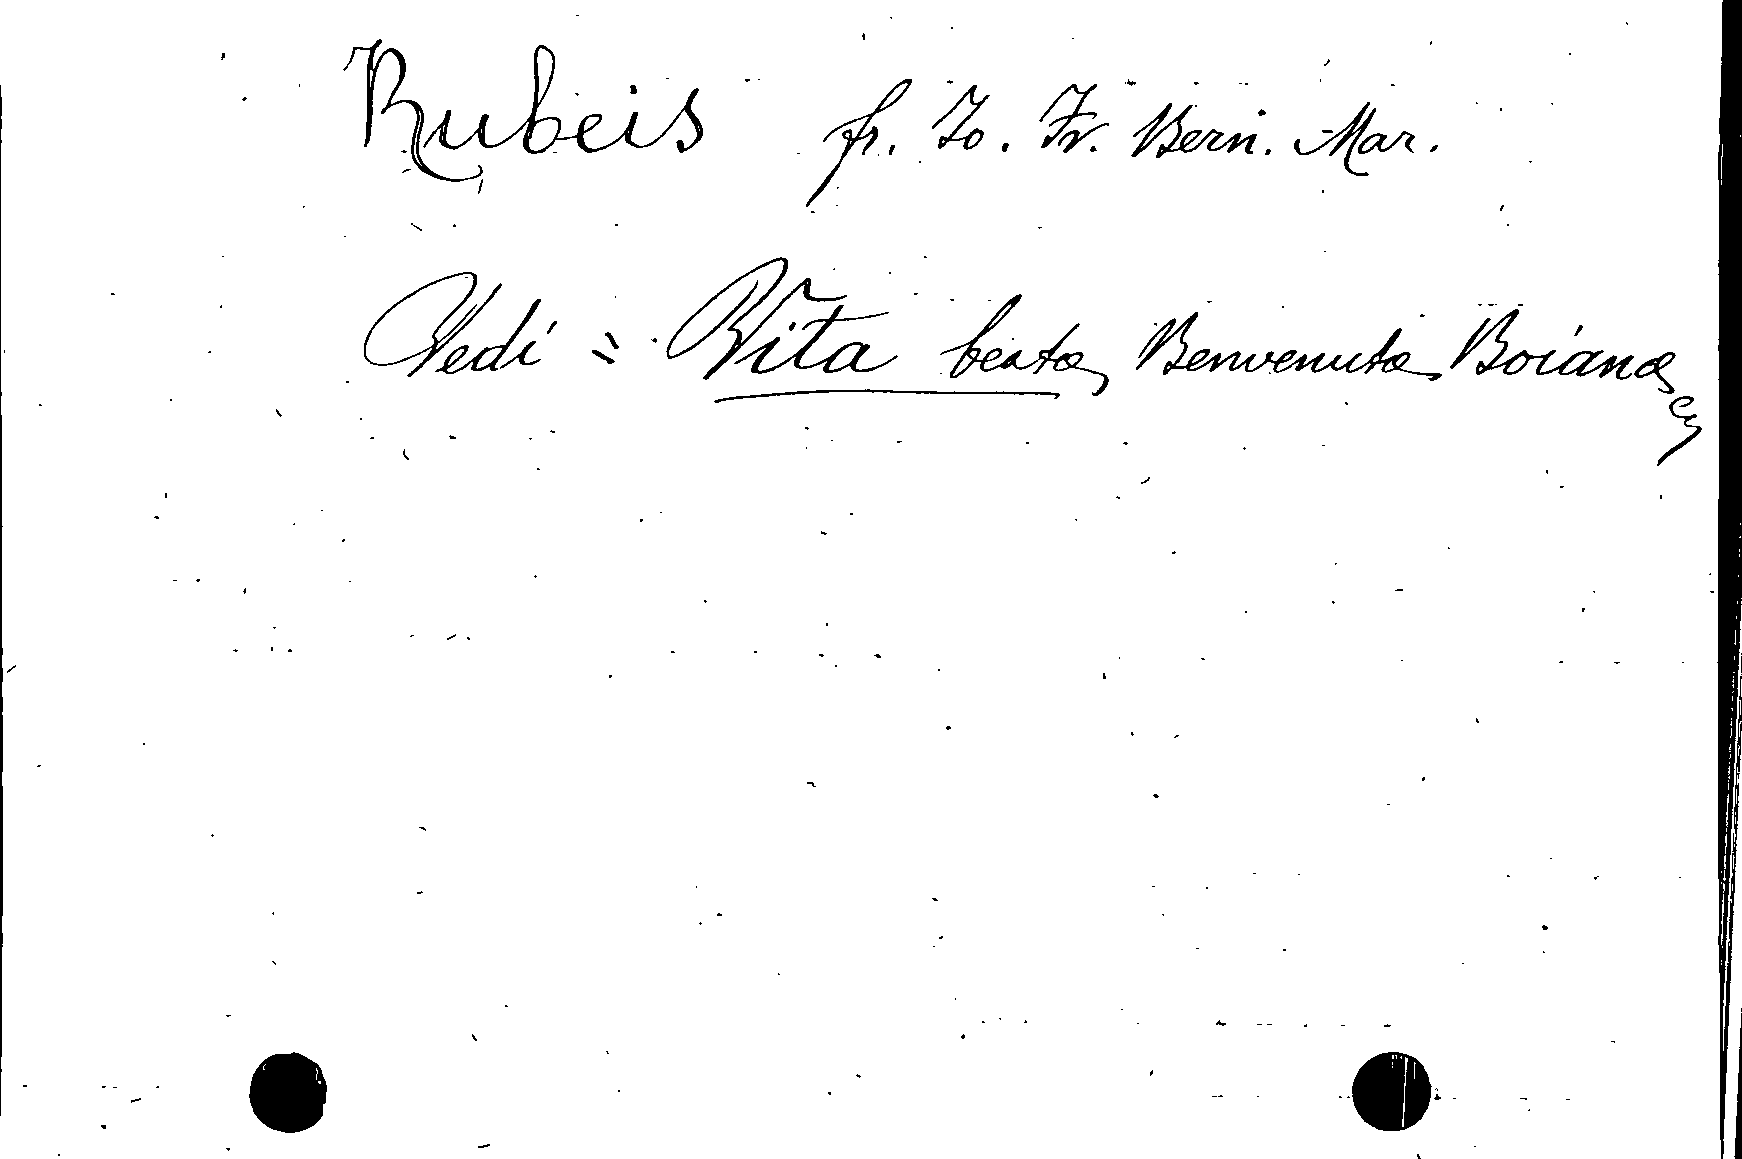 Rubeis fr. Jo. Fr. Bern. Mar.
Vedi = Vita beatæ Benvenutæ Boianæ